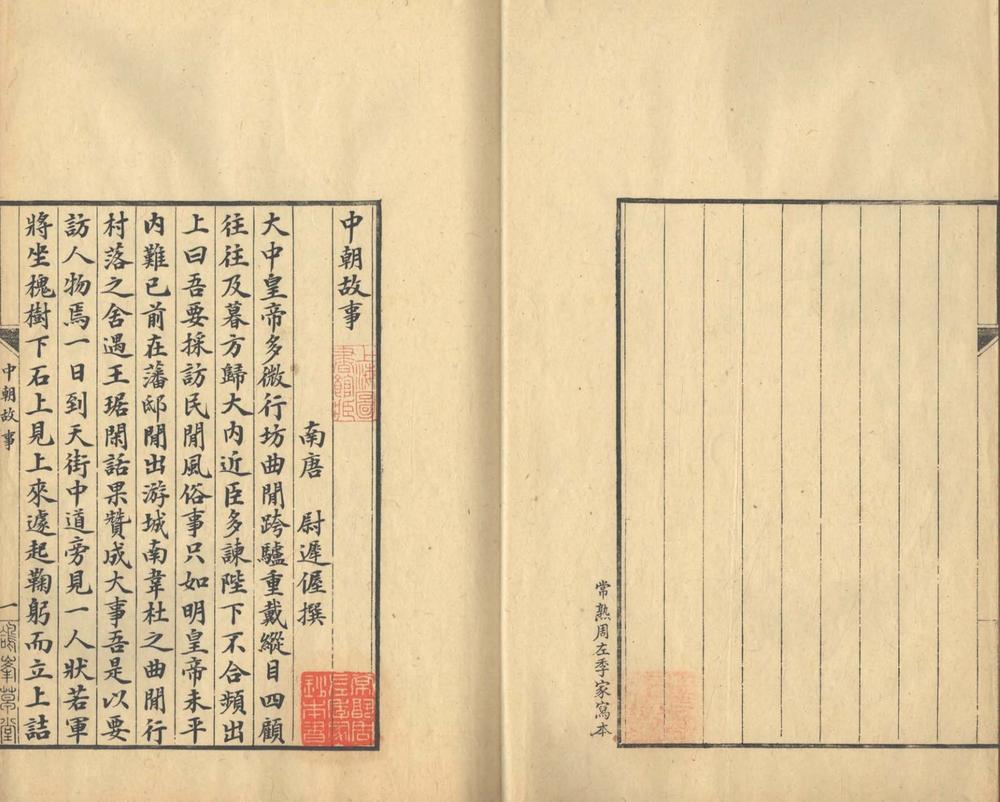 常熟周左季家寫本
中朝故事
上海圖
書館藏
南唐　尉遲偓撰
常昭周
左季家
鈔本書
大中皇帝多微行坊曲閒跨驢重戴縱目四顧
往往及暮方歸大內近臣多諫陛下不合頻出
上曰吾要採訪民閒風俗事只如明皇帝未平
內難已前在藩邸閒出游城南韋杜之曲閒行
村落之舍遇王琚閑話果贊成大事吾是以要
訪人物焉一日到天街中道旁見一人狀若軍
將坐槐樹下石上見上來遽起鞠躬而立上詰
中朝故事
一
鴿峯草堂